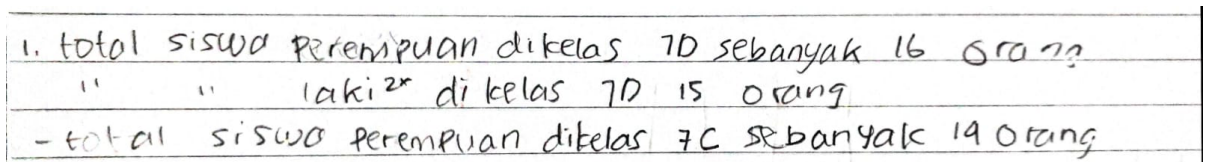 1. total siswa perempuan dikelas 7D sebanyak 16 orang
" " laki2x di kelas 7D 15 orang
- total siswa perempuan dikelas 7C sebanyak 19 orang